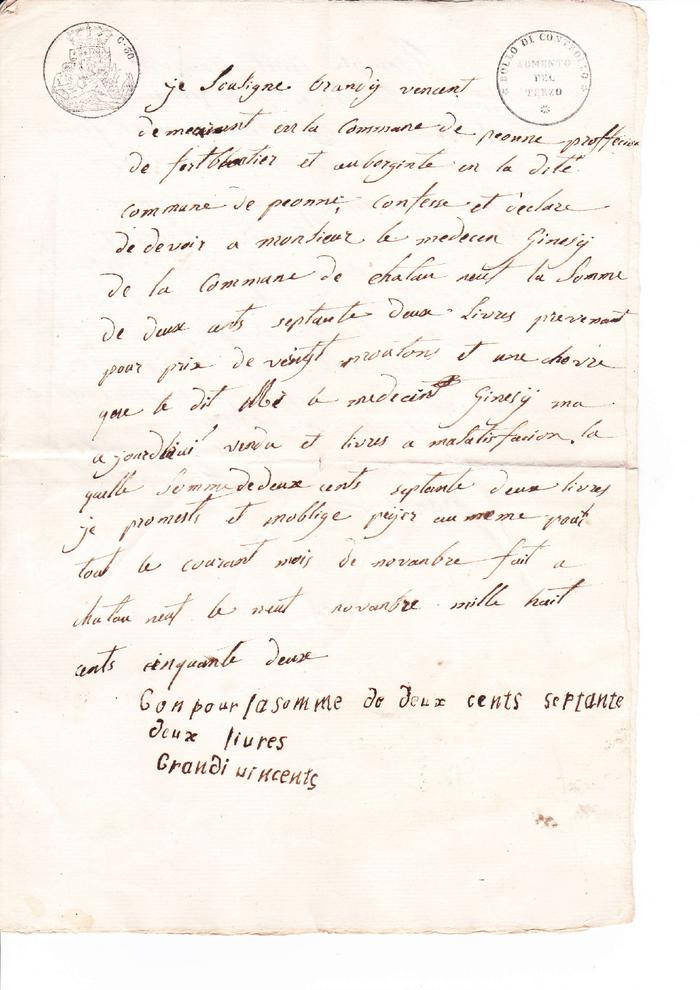 C. 80.
BOLLO DI CONTROLLO
AUMENTO
DEL
TERZO
je Sousigne brandy vencent
demeurant en la Commune de peonne proffecion
de fertblantier et auberginte en la dite
Commune de peonne, Confesse et declare
de devoir a monsieur le medecin Ginesy
de la Commune de chatau neuf la Somme
de deux cents septante deux Livres prevenant
pour prix de veingt moutons et une chevre
que le dit Mr le medecin Ginesy ma
ajourdhui vendu et livres a masatisfacion, la
quelle Somme dedeux cents septante deux livres
je promests et moblige peyer au meme pour
tout le courant mois de novanbre fait a
chatau neuf le neuf novanbre mille huit
cents cinquante deux
Bon pour la somme de deux cents septante
deux livres
Grandi vincents